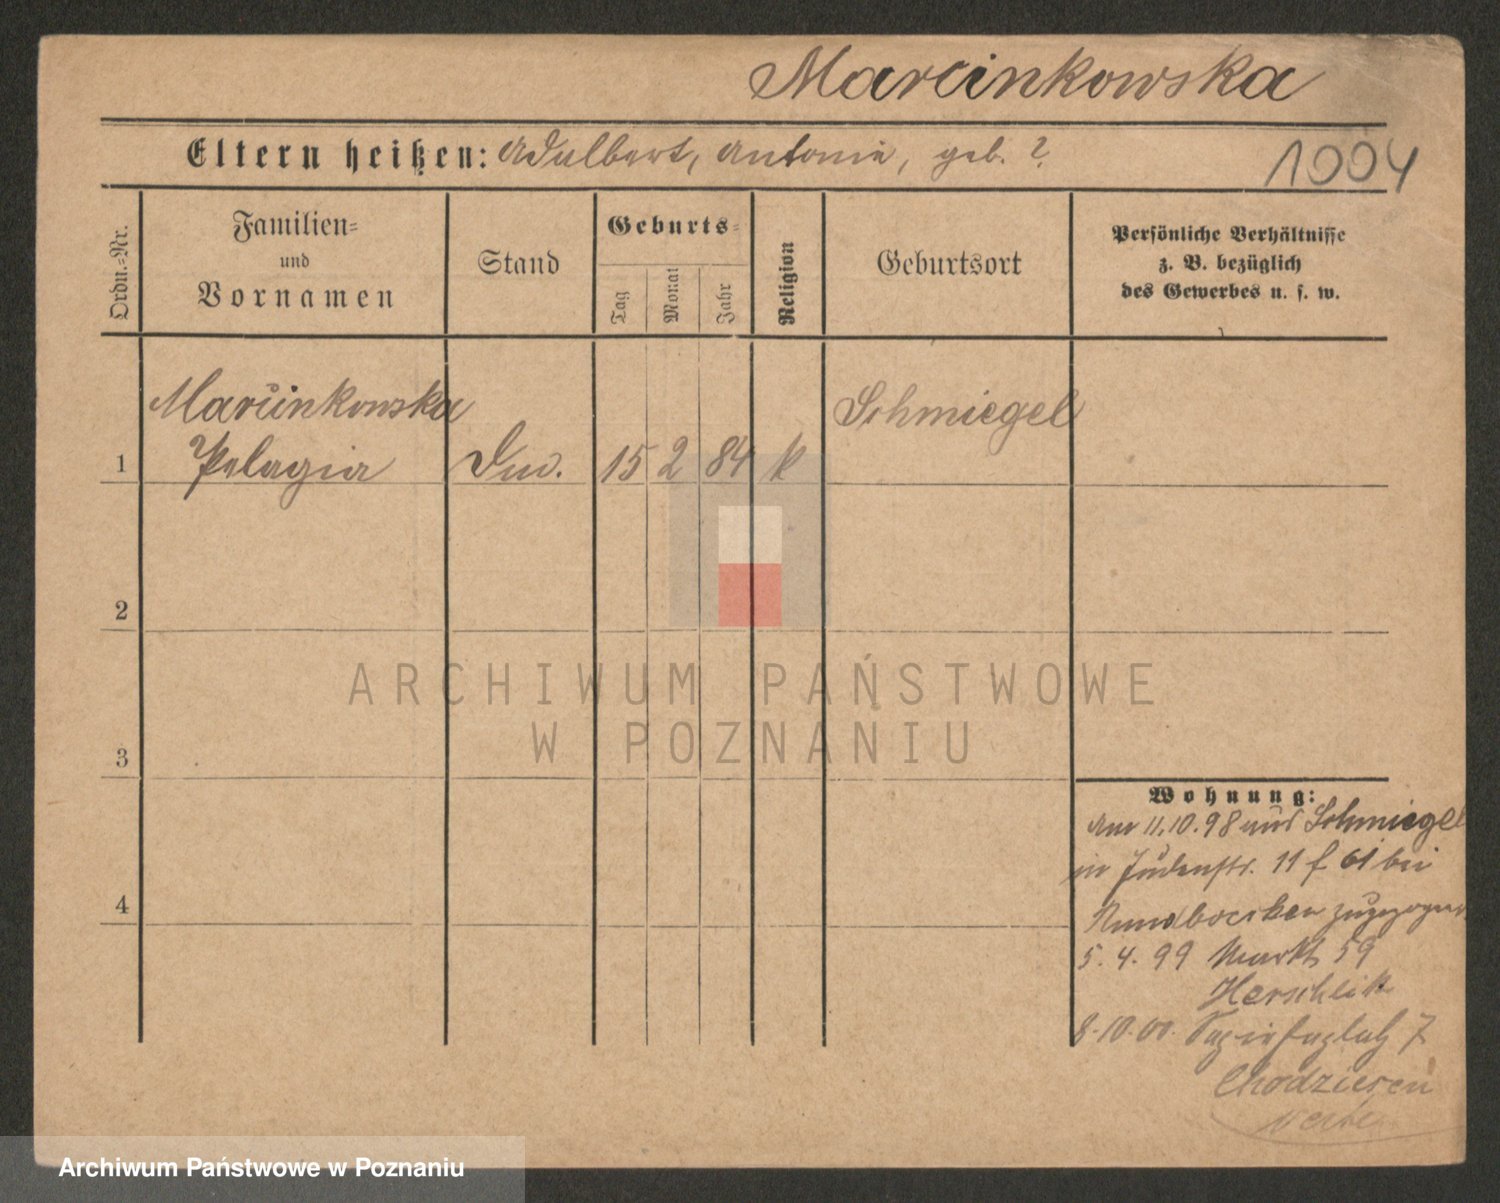 Marcinkowska
Eltern heißen: Adalbert, Antonie, geb. ?
1004
Ordn.-Nr.
Familien-
und
Vornamen
Stand
Geburts-
Tag
Monat
Jahr
Religion
Geburtsort
Persönliche Verhältnisse
z. B. bezüglich
des Gewerbes u. s. w.
Marcinkowska
1 Pelagia
15 2 84 k
Schmiegel
2
3
4
ARCHIWUM PAŃSTWOWE
W POZNANIU
Wohnung:
am 11.10.98 aus Schmiegel
in Judenstr. 11 f 61 bei
zugezogen
5. 4. 99 Markt 59
Herschlik
8.10.00. Sapiehaplatz 7
Chodziesen
Archiwum Państwowe w Poznaniu